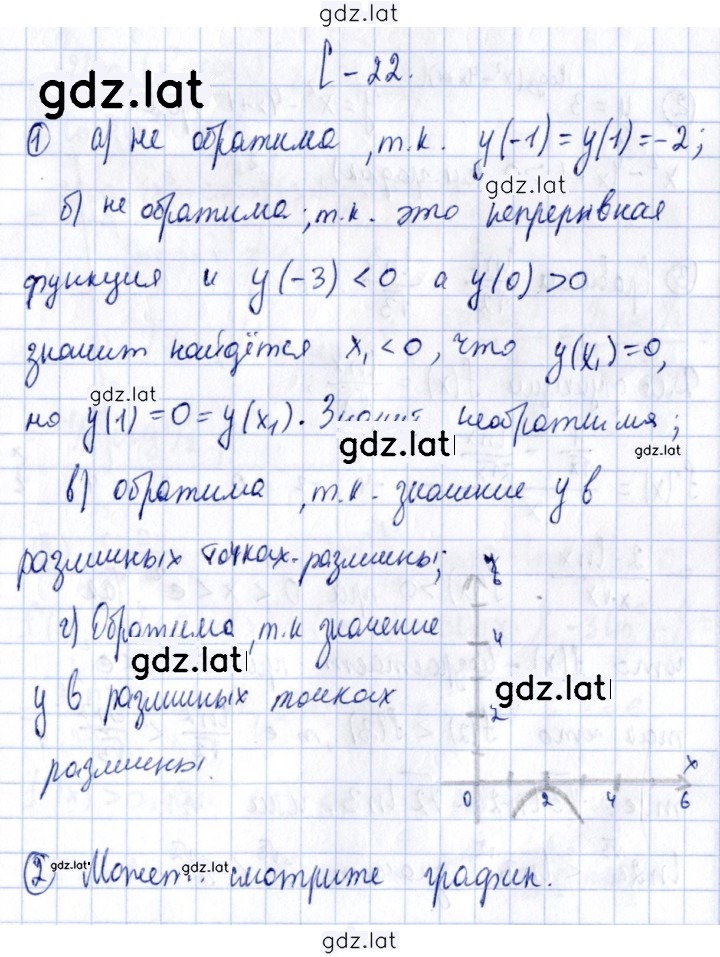 gdz.lat
С-22.
gdz.lat
① а) не обратима, т.к. y(-1)=y(1)=-2;
gdz.lat
б) не обратима; т.к. это непрерывная
функция и y(-3)<0 а y(0)>0
значит найдётся x₁<0, что y(x₁)=0,
gdz.lat
но y(1)=0=y(x₁). необратима;
gdz.lat
gdz.lat
в) обратима, т.к. значение y в
различных точках-различны;
y
6
г) Обратима, т.к значение
4
gdz.lat
gdz.lat
y в различных точках
2
различны.
x
0 2 4 6
② Может смотрите график.
gdz.lat
gdz.lat
gdz.lat